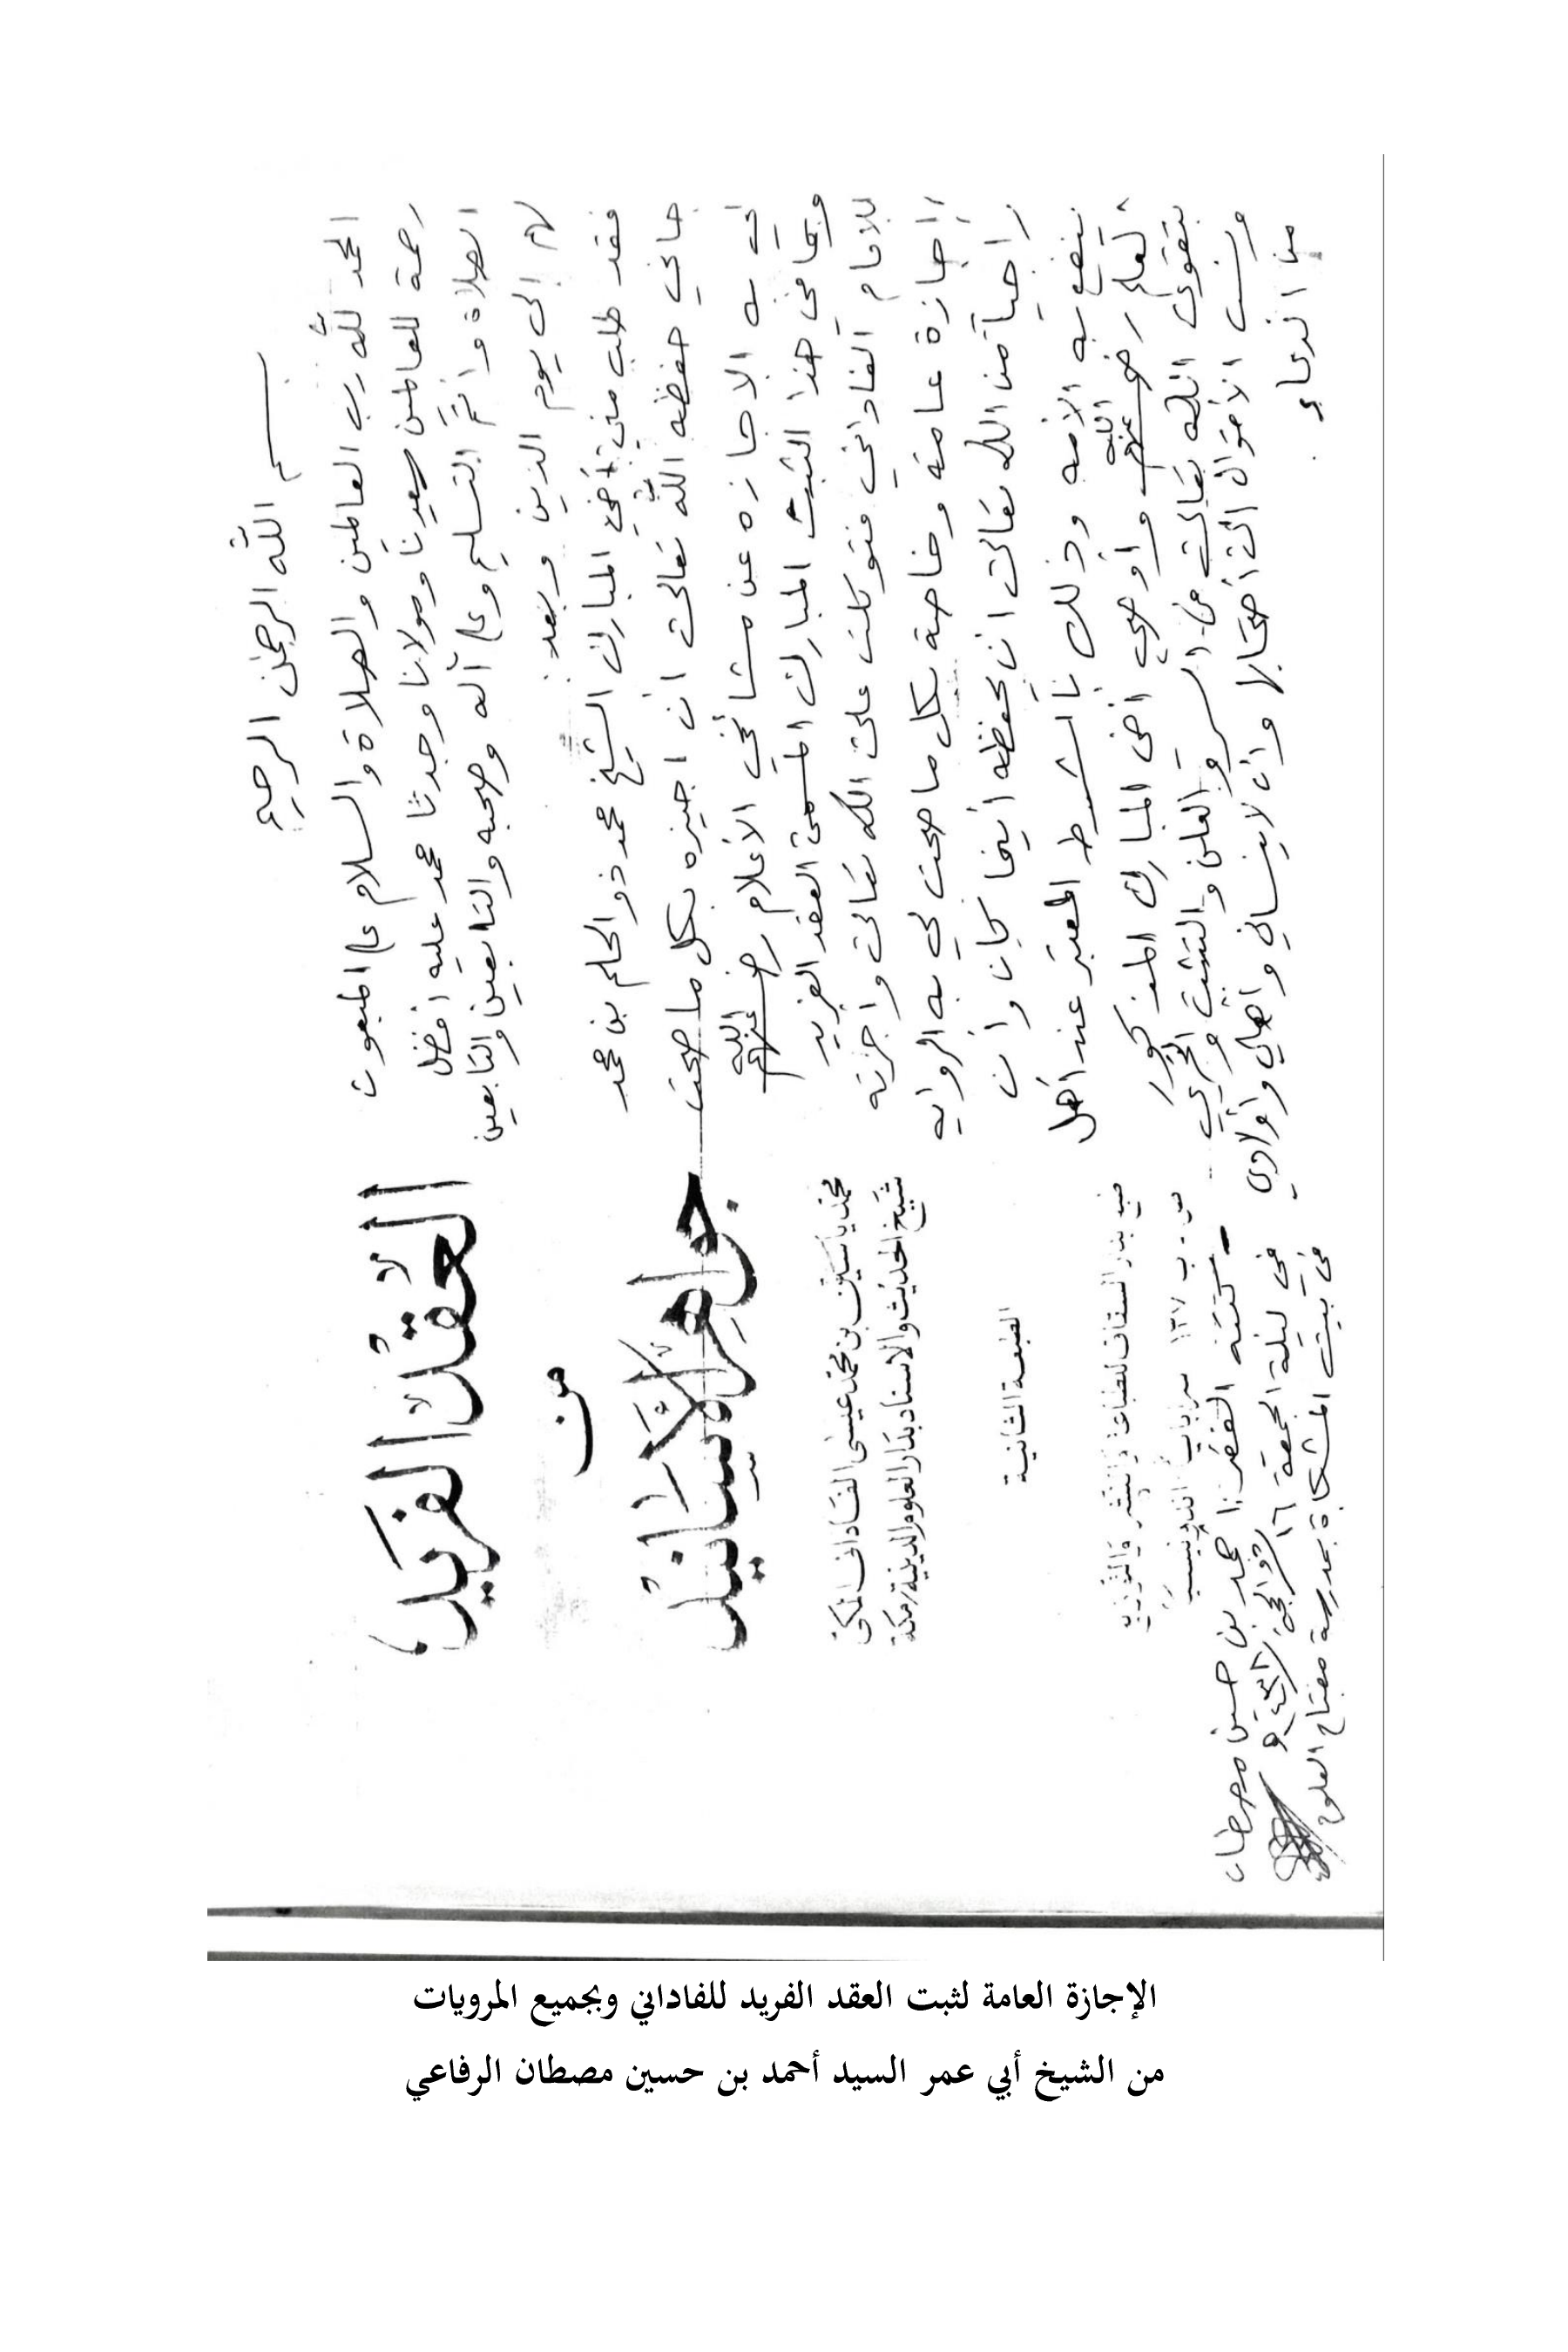 بسم الله الرحمن الرحيم
الحمد لله رب العالمين والصلاة والسلام على المبعوث
رحمة للعالمين سيدنا ومولانا وجدنا محمد عليه افضل
الصلاة واتم التسليم وعلى آله وصحبه والتابعين والتابعين
لهم إلى يوم الدين وبعد:
فقد طلب مني أخي المبارك الشيخ محمد ذو الحلم بن محمد
حاني حفظه الله تعالى أن اجيزه بكل ما صحت
لي به الاجازه عن مشائخي الأعلام رضي الله عنهم
وبما في هذا الثبت المبارك المسمى العقد الفريد
للامام الفاداني فتوكلت على الله تعالى واجزته
إجازة عامة وخاصة بكل ما صحت لي به الروايه
راجياً من الله تعالى ان يحفظه أينما كان وأن
ينفع به الأمه وذلك بالشرط المعتبر عند أهل
العلم رضي الله عنهم وأوصي أخي المبارك المذكور
بتقوى الله تعالى في السر والعلن والتثبت والتحري
ونسب الأقوال الى أصحابها وان لا ينساني وأهلي وأولادي
من الدعاء.
العقد الفريد
من
جواهر الأسانيد
محمد ياسين بن محمد عيسى الفاداني المكي
شيخ الحديث والاسناد بدار العلوم الدينية مكة
الطبعة الثانية
دار السقاف للطباعة والنشر والتوزيع
ص. ب ١٣٧ سربايا اندونيسيا
كتبه الفقير: احمد بن حسين مصطان
في ليلة الجمعة ١٦/ذو الحجة/
في بيت المشكاة بمدرسة مفتاح العلوم
الإجازة العامة لثبت العقد الفريد للفاداني وبجميع المرويات
من الشيخ أبي عمر السيد أحمد بن حسين مصطان الرفاعي